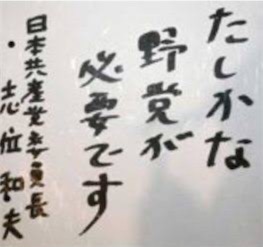 たしかな
野党が
必要です
日本共産党委員長
・志位和夫